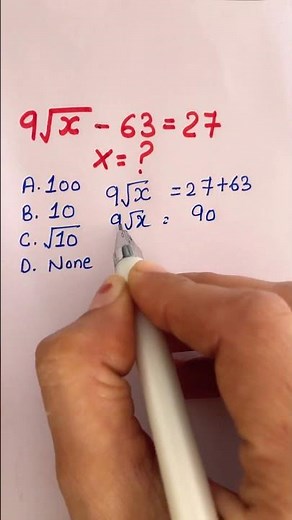 9√x - 63 = 27
x = ?
A. 100
B. 10
C. √10
D. None
9√x = 27+63
9√x = 90